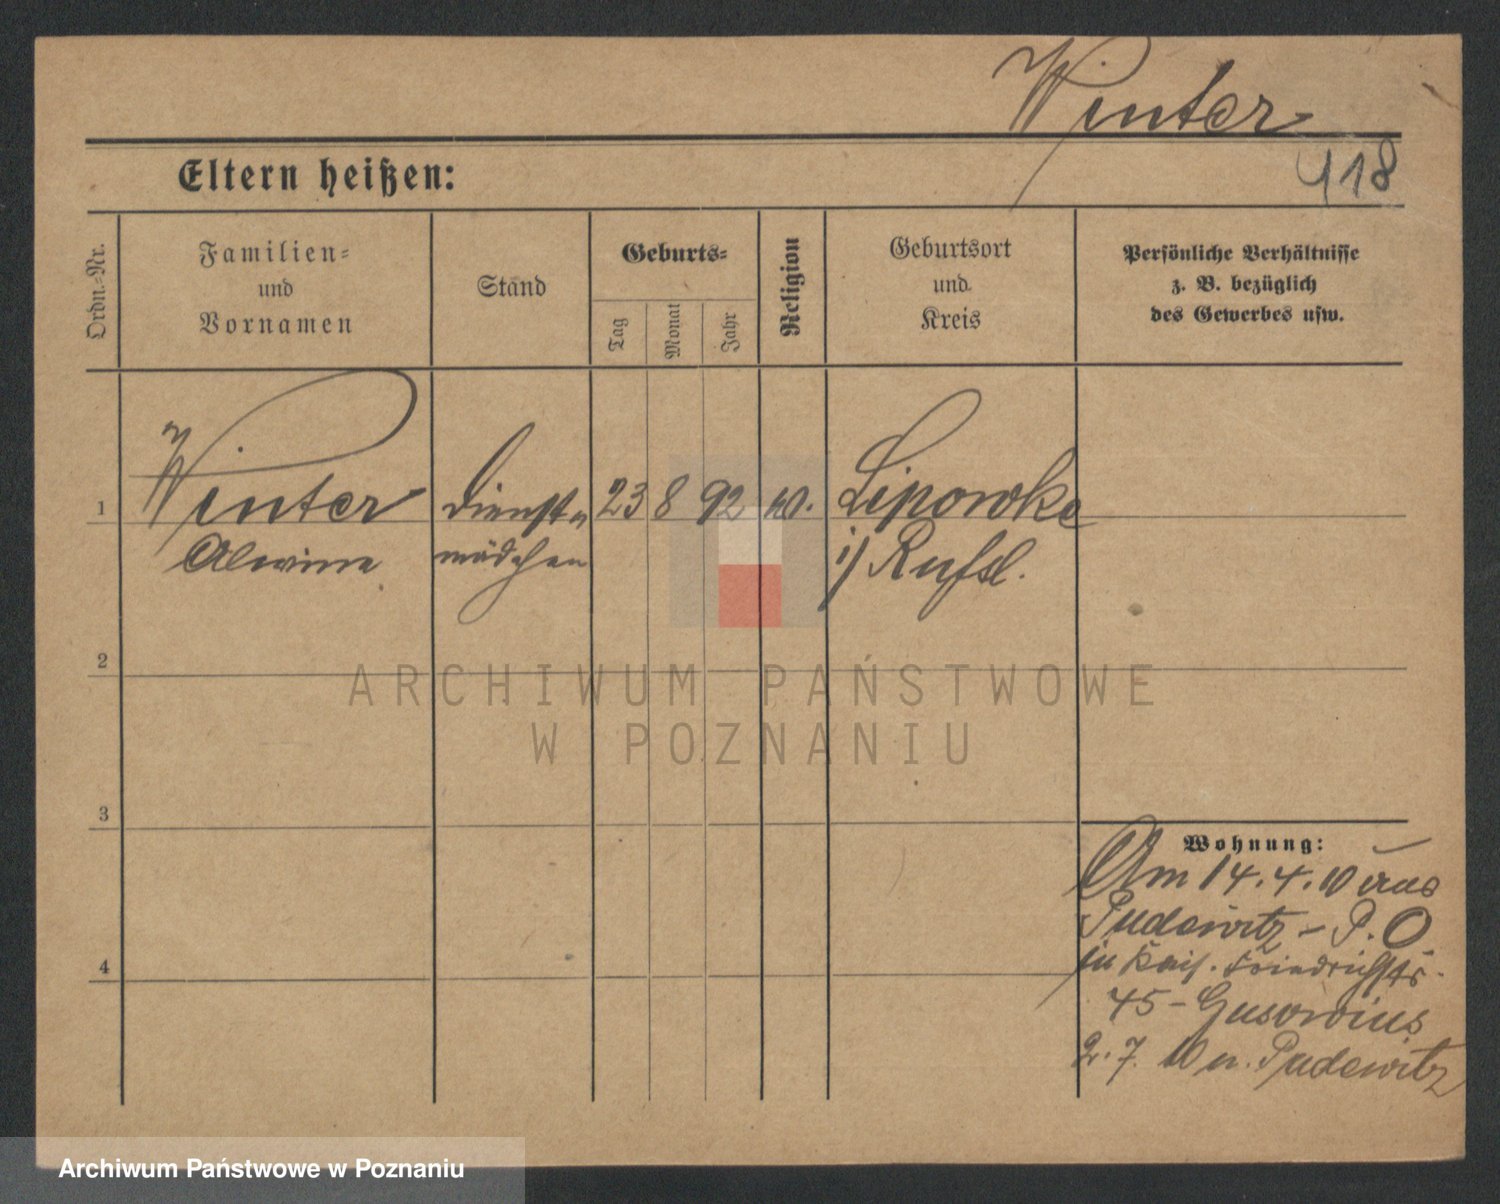 Winter
418
Eltern heißen:
Ordn.-Nr.
Familien-
und
Vornamen
Stand
Geburts-
Tag
Monat
Jahr
Religion
Geburtsort
und
Kreis
Persönliche Verhältnisse
z. B. bezüglich
des Gewerbes usw.
1
Winter
Alwine
Dienst-
mädchen
23 8 92
Lipowke
i/ Rußl.
2
3
4
Wohnung:
Am 14.4.10 aus
Pudewitz - P. O.
in Kais. Friedrichstr.
45 - Gusovius
2.7.10 n. Pudewitz
ARCHIWUM PAŃSTWOWE
W POZNANIU
Archiwum Państwowe w Poznaniu